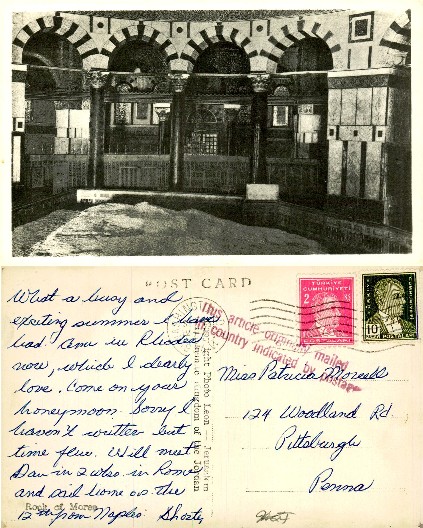 POST CARD
What a busy and
exciting summer I have
had. Am in Rhodes
now, which I dearly
love. Come on your
honeymoon. Sorry I
haven't written but
time flies. Will meet
Dav in 2 wks. in Rome
and sail home on the
12th from Naples. Shorty
Rock of
Photo Leon - Jerusalem
Kingdom of the Jordan
This article originally mailed
in country indicated by
TÜRKİYE
CUMHURİYETİ
2
POSTALARI
TÜRKİYE
10
POSTALARI
Miss Patricia
124 Woodland Rd.
Pittsburgh
Penna